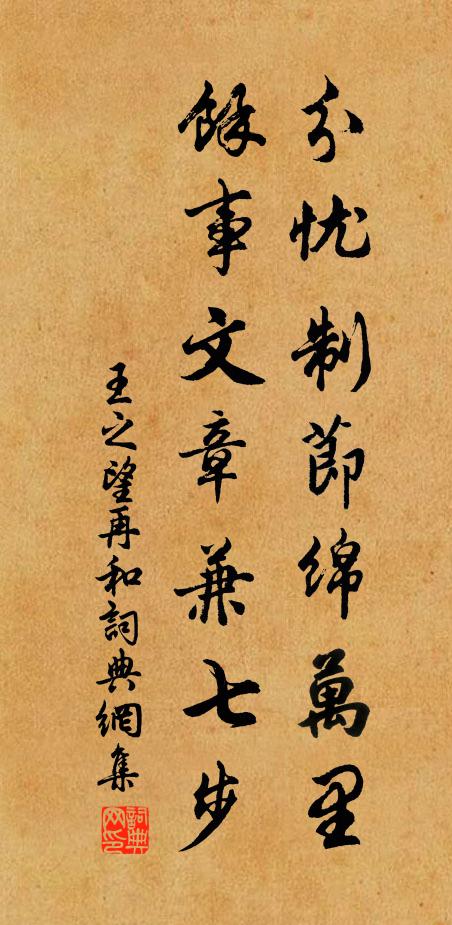 分忧制節绵萬里
餘事文章兼七步
王之望再和詞典網集
詞典网印